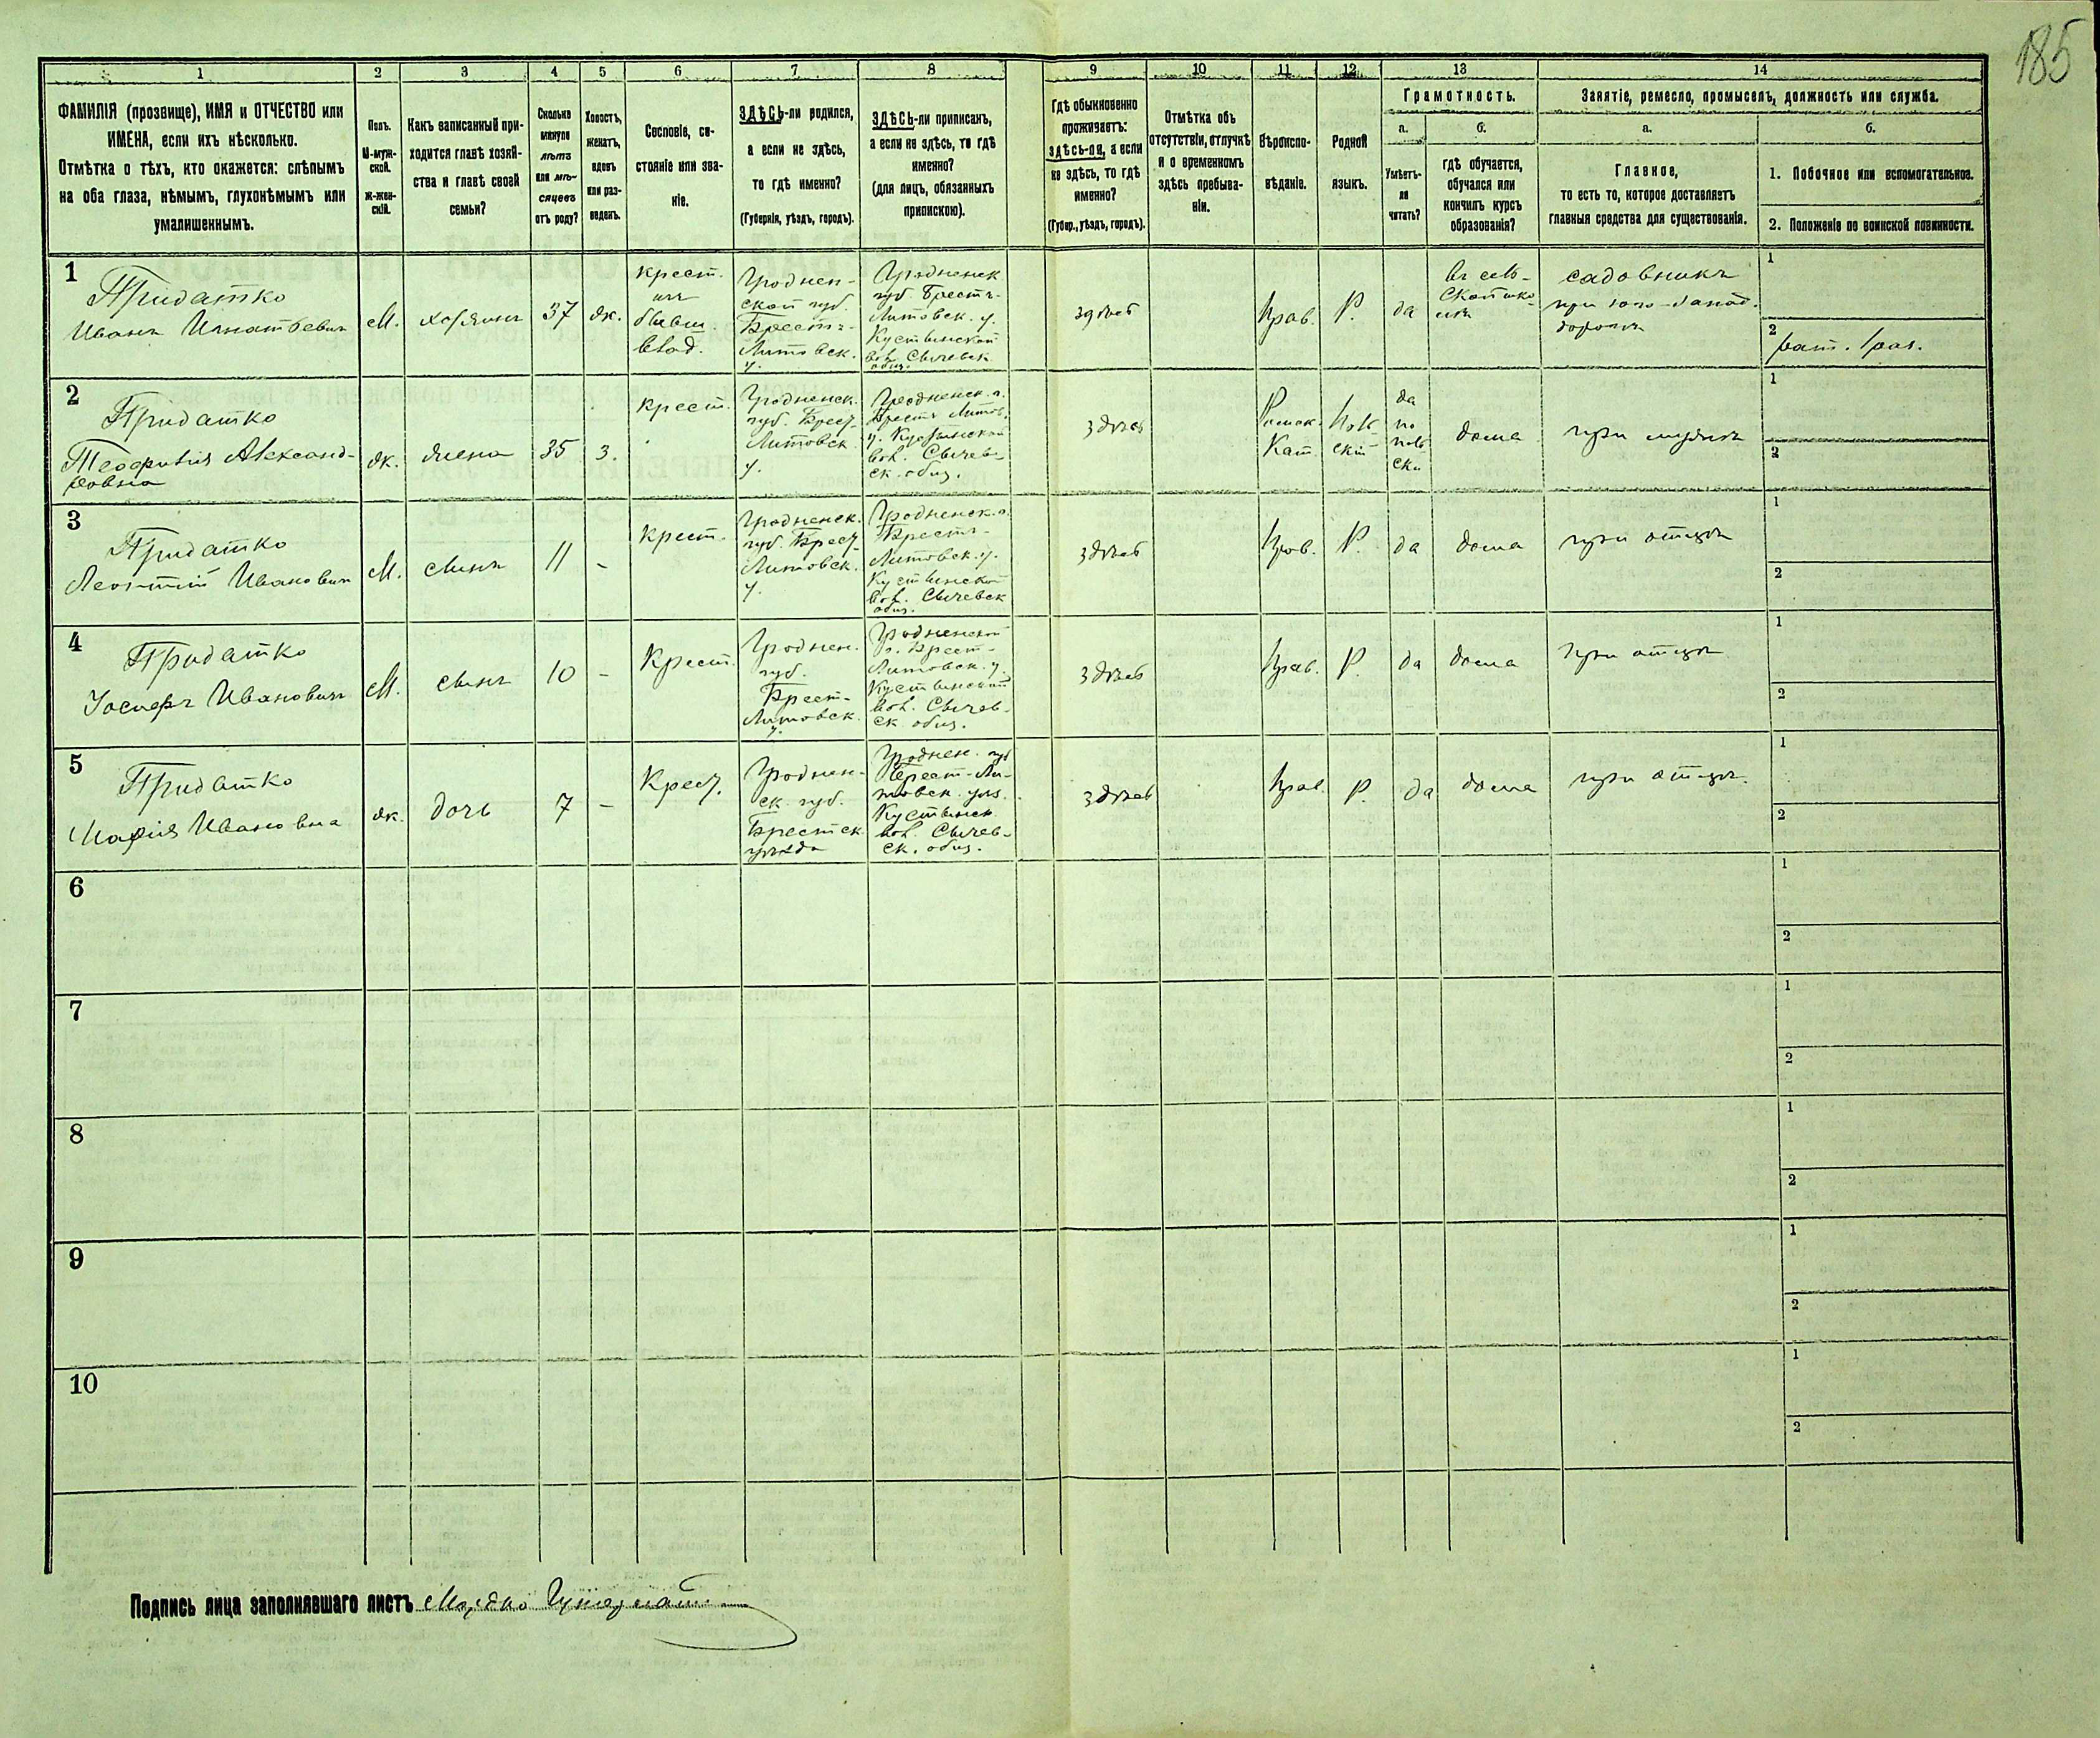 185
1 2 3 4 5 6 7 8 9 10 11 12 13 14
ФАМИЛІЯ (прозвище), ИМЯ и ОТЧЕСТВО или
ИМЕНА, если ихъ нѣсколько.
Отмѣтка о тѣхъ, кто окажется: слѣпымъ
на оба глаза, нѣмымъ, глухонѣмымъ или
умалишеннымъ.
Полъ.
М-муж-
ской.
ж-жен-
скій.
Какъ записанный при-
ходится главѣ хозяй-
ства и главѣ своей
семьи?
Сколько
минуло
лѣтъ
или мѣ-
сяцевъ
отъ роду?
Холостъ,
женатъ,
вдовъ
или раз-
веденъ.
Сословіе, со-
стояніе или зва-
ніе.
ЗДѢСЬ-ли родился,
а если не здѣсь,
то гдѣ именно?
(Губернія, уѣздъ, городъ).
ЗДѢСЬ-ли приписанъ,
а если не здѣсь, то гдѣ
именно?
(для лицъ, обязанныхъ
припискою).
Гдѣ обыкновенно
проживаетъ:
здѣсь-ли, а если
не здѣсь, то гдѣ
именно?
(Губер., уѣздъ, городъ).
Отмѣтка объ
отсутствіи, отлучкѣ
и о временномъ
здѣсь пребыва-
ніи.
Вѣроиспо-
вѣданіе.
Родной
языкъ.
Грамотность.
а.
Умѣетъ-
ли
читать?
б.
гдѣ обучается,
обучался или
кончилъ курсъ
образованія?
Занятіе, ремесло, промыселъ, должность или служба.
а.
Главное,
то есть то, которое доставляетъ
главныя средства для существованія.
б.
1. Побочное или вспомогательное.
2. Положеніе по воинской повинности.
1
Придатко
Иванъ Игнатьевич
М.
хозяинъ
37
ж.
крест.
изъ
бывш.
влад.
Гроднен-
ской губ.
Брестъ-
Литовск.
у.
Гродненск
губ. Брестъ-
Литовск. у.
Кустынской
вол. Сычевск
общ.
здѣсь
Прав.
Р.
да
въ сель-
ской шко-
лѣ
садовникъ
при юго-запад.
дорогѣ
1
2
рат. 1 раз.
2
Придатко
Теофилія Александ-
ровна
ж.
жена
35
З.
крест.
Гродненск.
губ. Брест
Литовск
у.
Гродненск. г.
Брестъ Литов.
у. Кустынской
вол. Сычев-
ск. общ.
здѣсь
Римск.
Кат.
поль
скій
да
по
поль
ски
дома
при мужѣ
1
2
3
Придатко
Леонтій Иванович
М.
сынъ
11
-
крест.
Гродненск.
губ. Брест-
Литовск.
у.
Гродненск. г.
Брестъ-
Литовск. у.
Кустынской
вол. Сычевск
общ.
здѣсь
Прав.
Р.
да
дома
при отцѣ
1
2
4
Придатко
Іосифъ Ивановичъ
М.
сынъ
10
-
Крест.
Гроднен.
губ.
Брест-
Литовск.
у.
Гродненской
г. Брест-
Литовск. у.
Кустынской
вол. Сычев-
ск общ.
здѣсь
Прав.
Р.
да
дома
При отцѣ
1
2
5
Придатко
Марія Ивановна
ж.
дочь
7
-
Крест.
Гроднен-
ск. губ.
Брестск
уѣзда
Гроднен. губ
Брест-Ли-
товск. уѣз.
Кустынск.
вол. Сычев-
ск. общ.
здѣсь
Прав.
Р.
да
дома
при отцѣ
1
2
6
1
2
7
1
2
8
1
2
9
1
2
10
1
2
Подпись лица заполнявшаго листъ